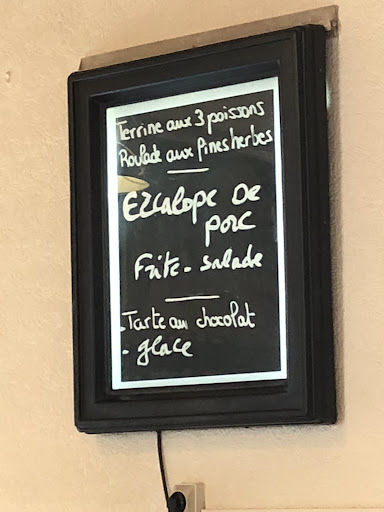 Terrine aux 3 poissons
Roulade aux fines herbes
Escalope De
porc
Frite - salade
- Tarte au chocolat
- glace